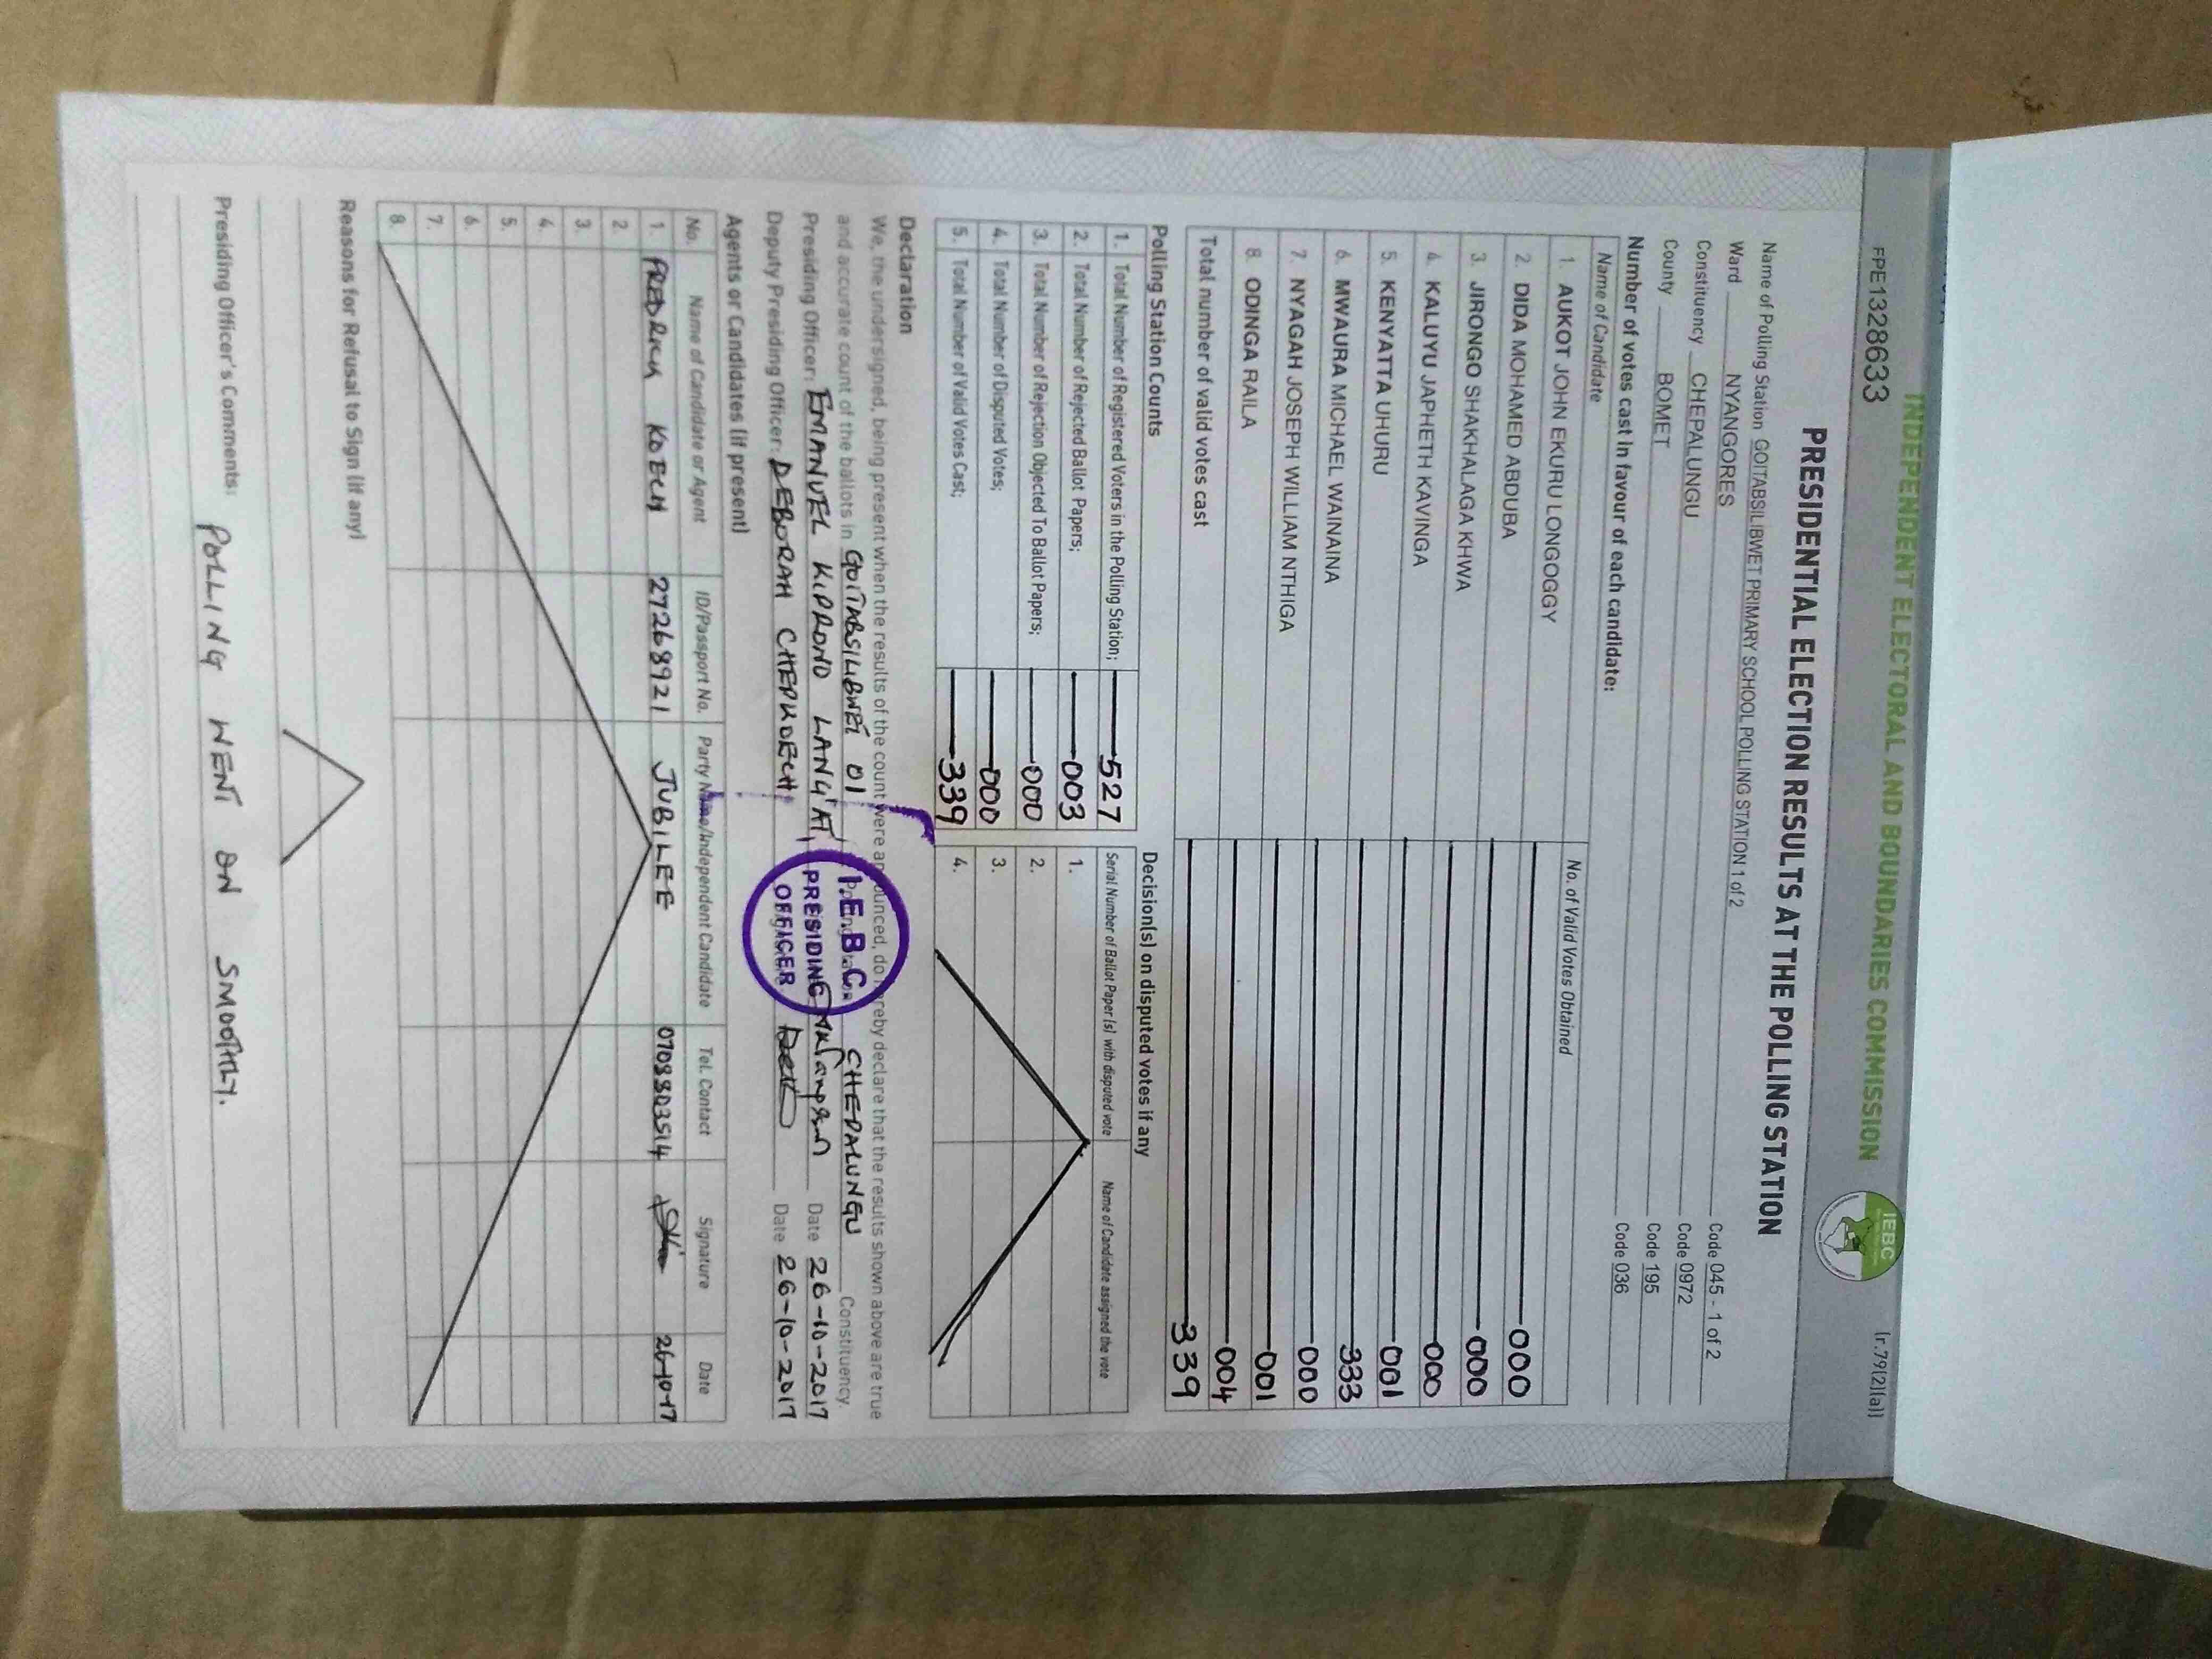 INDEPENDENT ELECTORAL AND BOUNDARIES COMMISSION
IEBC
FPE1328633
(r.79(2)(a))
PRESIDENTIAL ELECTION RESULTS AT THE POLLING STATION
Name of Polling Station GOITABSILIBWET PRIMARY SCHOOL POLLING STATION 1 of 2 Code 045 - 1 of 2
Ward NYANGORES Code 0972
Constituency CHEPALUNGU Code 195
County BOMET Code 036
Number of votes cast in favour of each candidate:
Name of Candidate No. of Valid Votes Obtained
1. AUKOT JOHN EKURU LONGOGGY 000
2. DIDA MOHAMED ABDUBA 000
3. JIRONGO SHAKHALAGA KHWA 000
4. KALUYU JAPHETH KAVINGA 001
5. KENYATTA UHURU 333
6. MWAURA MICHAEL WAINAINA 000
7. NYAGAH JOSEPH WILLIAM NTHIGA 001
8. ODINGA RAILA 004
Total number of valid votes cast 339
Polling Station Counts
1. Total Number of Registered Voters in the Polling Station; 527
2. Total Number of Rejected Ballot Papers; 003
3. Total Number of Rejection Objected To Ballot Papers; 000
4. Total Number of Disputed Votes; 000
5. Total Number of Valid Votes Cast; 339
Decision(s) on disputed votes if any
Serial Number of Ballot Paper (s) with disputed vote Name of Candidate assigned the vote
1.
2.
3.
4.
Declaration
We, the undersigned, being present when the results of the count were announced, do hereby declare that the results shown above are true
and accurate count of the ballots in GOITABSILIBWET 01 CHEPALUNGU Constituency.
Presiding Officer: EMANUEL KIPRONO LANG'AT Date 26-10-2017
Deputy Presiding Officer: DEBORAH CHEPKOECH Date 26-10-2017
I.E.B.C
PRESIDING
OFFICER
Agents or Candidates (if present)
No. Name of Candidate or Agent ID/Passport No. Party Name/Independent Candidate Tel. Contact Signature Date
1. FREDRICK KOECH 27268921 JUBILEE 0708803514 26-10-17
2.
3.
4.
5.
6.
7.
8.
Reasons for Refusal to Sign (if any)
Presiding Officer's Comments: POLLING WENT ON SMOOTHLY.